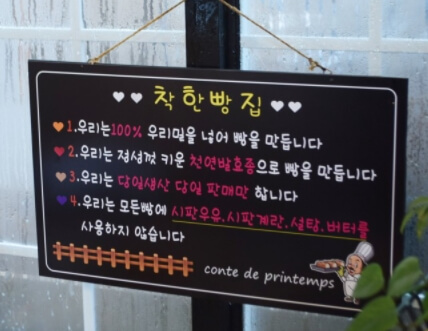 착한빵집
1.우리는100% 우리밀을 넣어 빵을 만듭니다
2.우리는 정성껏 키운 천연발효종으로 빵을 만듭니다
3.우리는 당일생산 당일 판매만 합니다
4.우리는 모든빵에 시판우유.시판계란.설탕.버터를
사용하지 않습니다
conte de printemps